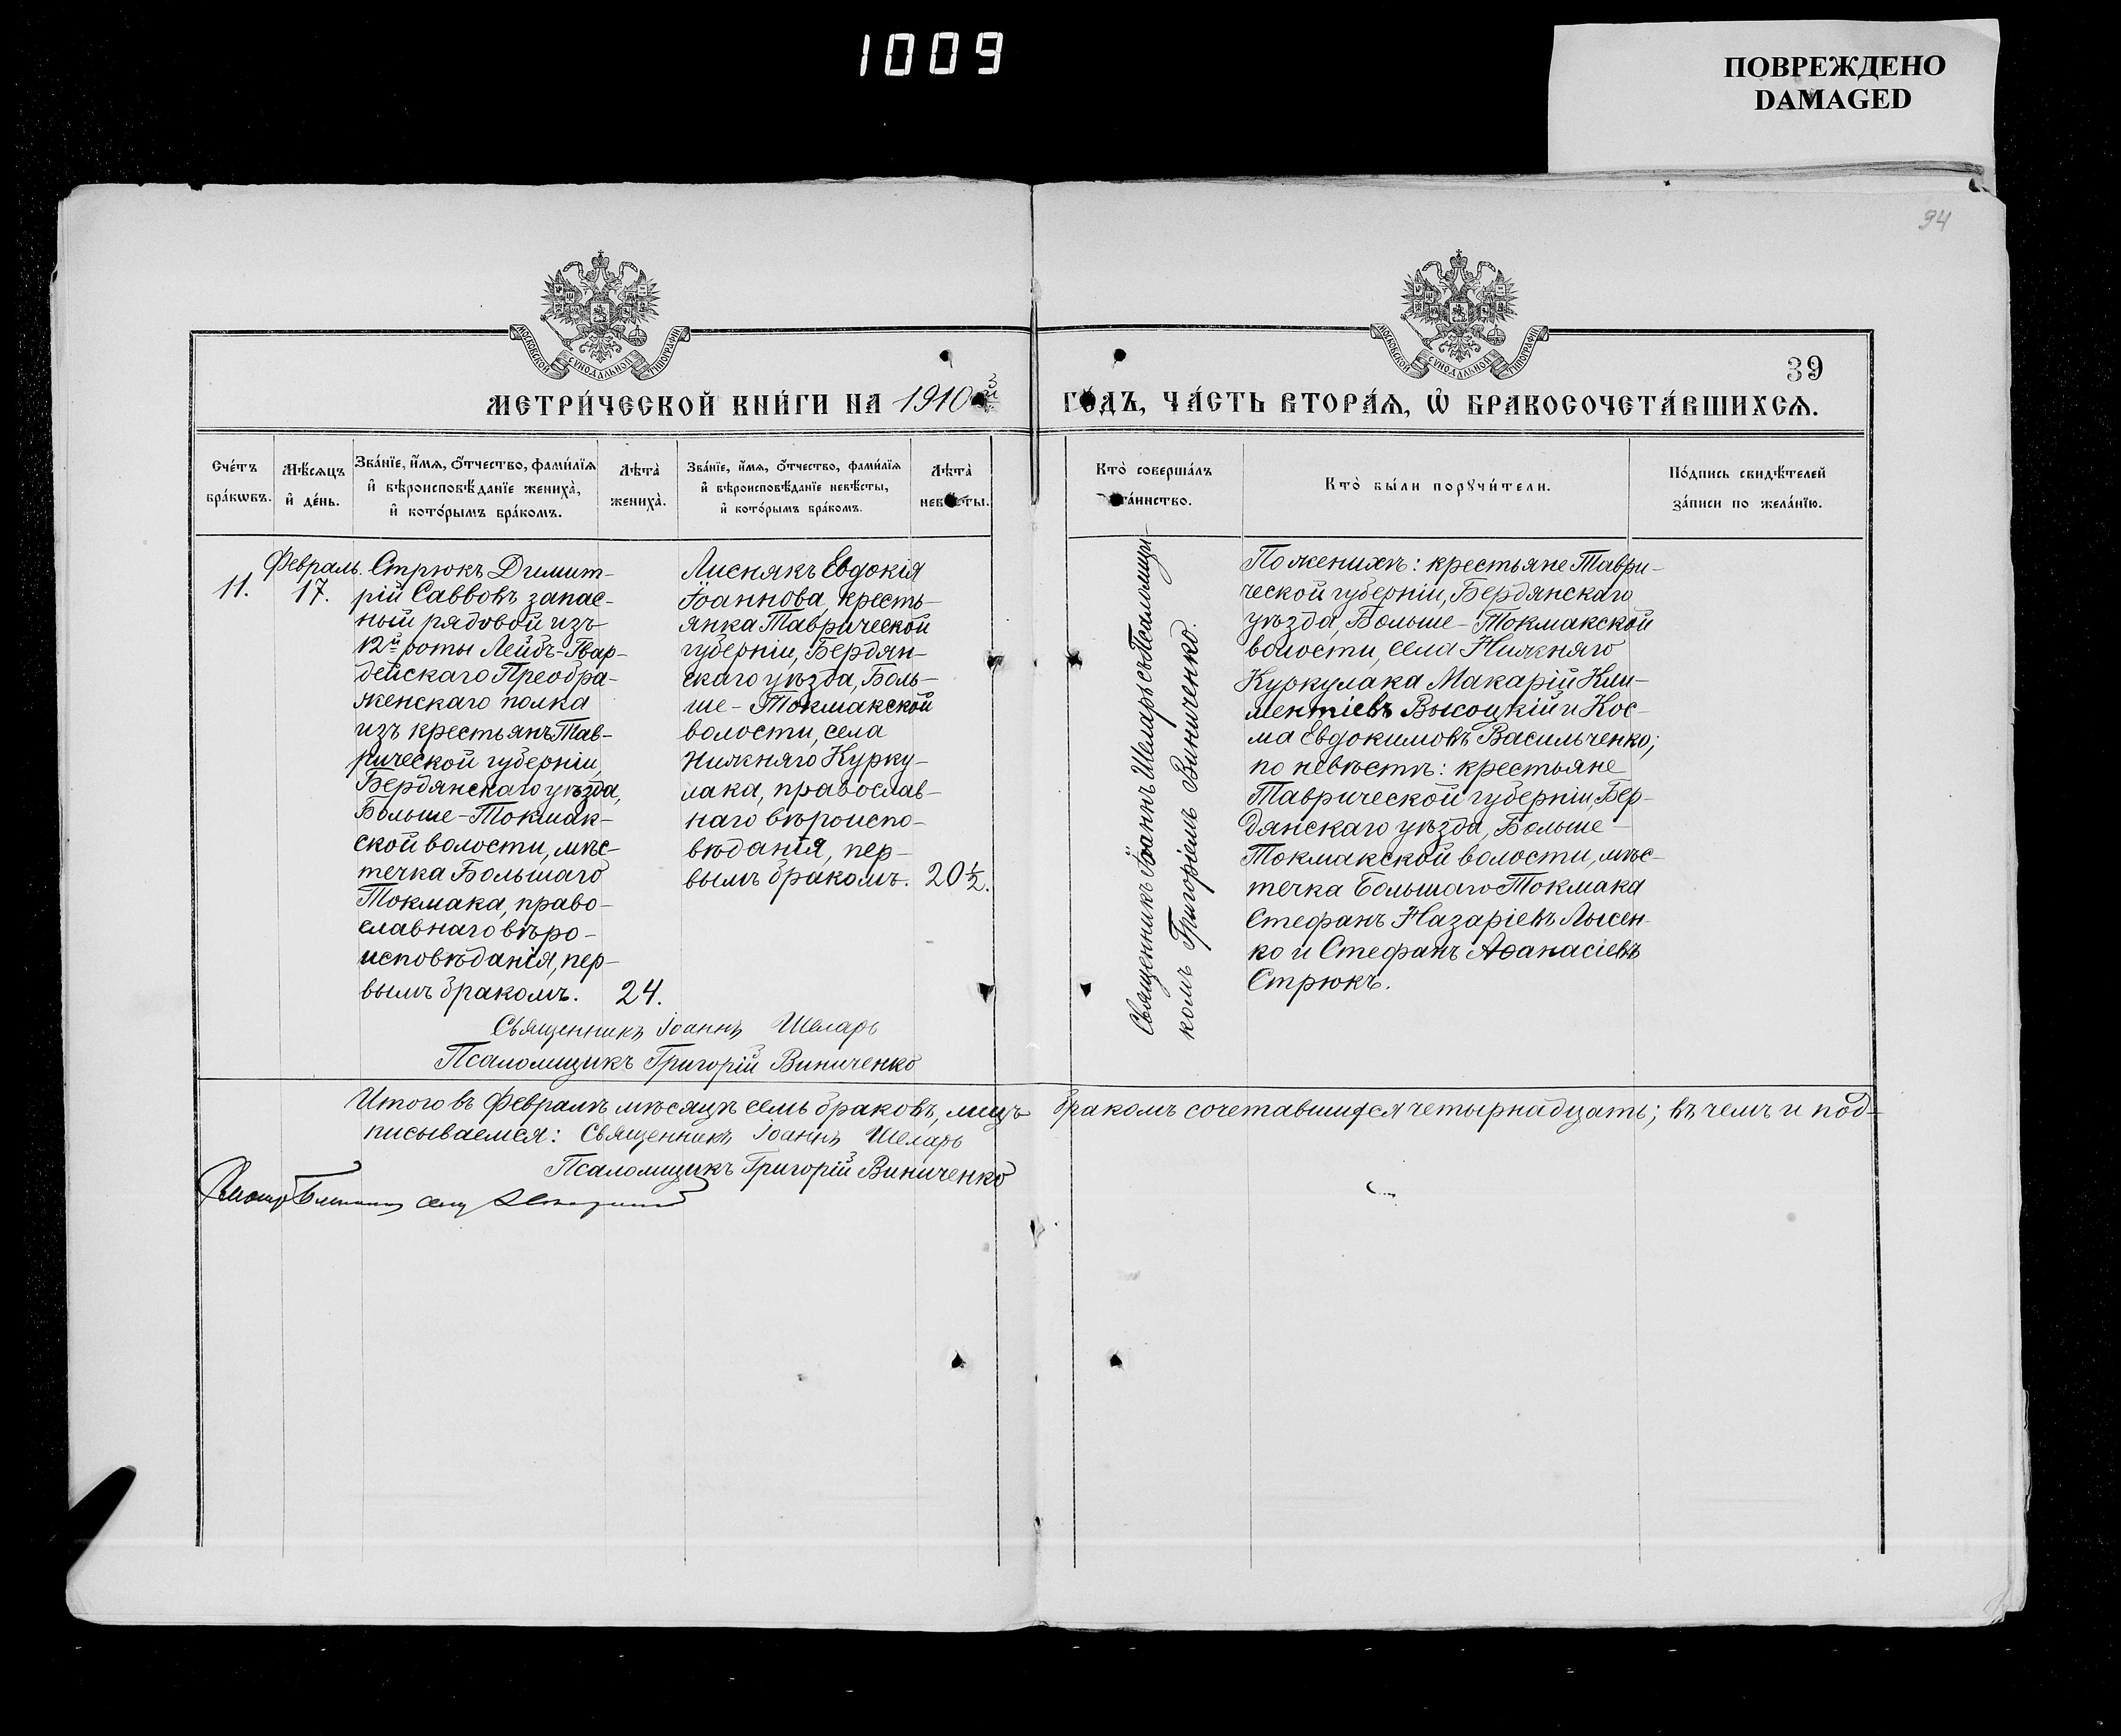 1009
ПОВРЕЖДЕНО
DAMAGED
94
МОСКОВСКОЙ СѴНОДАЛЬНОЙ ТИПОГРАФІИ
МОСКОВСКОЙ СѴНОДАЛЬНОЙ ТИПОГРАФІИ
39
МЕТРИ́ЧЕСКОЙ КНИ́ГИ НА 1910й
ГО́ДЪ, ЧА́СТЬ ВТОРА́Ѧ, Ѽ БРАКОСОЧЕТА́ВШИХСѦ.
Сче́тъ
бра́кωвъ.
Мѣ́сѧцъ
и҆ де́нь.
Зва́нїе, и҆́мѧ, ѻ҆́тчество, фами́лїѧ
и҆ вѣроисповѣ́данїе жениха̀,
и҆ кото́рымъ бра́комъ.
Лѣ́та̀
жениха̀.
Зва́нїе, и҆́мѧ, ѻ҆́тчество, фами́лїѧ
и҆ вѣроисповѣ́данїе невѣ́сты,
и҆ кото́рымъ бра́комъ.
Лѣ́та̀
невѣ́сты.
Кто̀ соверша́лъ
та́инство.
Кто̀ бы́ли порꙋчи́тели.
По́дпись свидѣ́телей
за́писи по жела́нїю.
11.
Февраль.
17.
Стрюкъ Димит-
рій Саввовъ запас-
ный рядовой изъ
12й роты Лейбъ-Гвар-
дейскаго Преобра-
женскаго полка
изъ крестьянъ Тав-
рической губерніи,
Бердянскаго уѣзда,
Больше-Токмак-
ской волости, мѣс-
течка Большаго
Токмака, право-
славнаго вѣро-
исповѣданія, пер-
вымъ бракомъ. 24.
Лиснякъ Евдокія
Іоаннова, кресть-
янка Таврической
губерніи, Бердян-
скаго уѣзда, Боль-
ше-Токмакской
волости, села
Нижняго Курку-
лака, православ-
наго вѣроиспо-
вѣданія, пер-
вымъ бракомъ. 20½.
Священникъ Іоаннъ Шеларь съ Псаломщи-
комъ Григоріемъ Виниченко.
По женихѣ: крестьяне Таври-
ческой губерніи, Бердянскаго
уѣзда, Больше-Токмакской
волости, села Нижняго
Куркулака Макарій Кли-
ментіевъ Высоцкій и Кос-
ма Евдокимовъ Васильченко;
по невѣстѣ: крестьяне
Таврической губерніи, Бер-
дянскаго уѣзда, Больше-
Токмакской волости, мѣс-
течка Большаго Токмака
Стефанъ Назаріевъ Лысен-
ко и Стефанъ Аѳанасіевъ
Стрюкъ.
Священникъ Іоаннъ Шеларь
Псаломщикъ Григорій Виниченко
Итого въ Февралѣ мѣсяцѣ семь браковъ, лицъ бракомъ сочетавшихся четырнадцать; въ чемъ и под-
писываемся: Священникъ Іоаннъ Шеларь
Псаломщикъ Григорій Виниченко